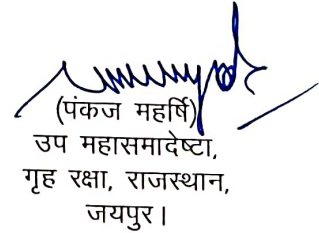 (पंकज महर्षि)
उप महासमादेष्टा,
गृह रक्षा, राजस्थान,
जयपुर।